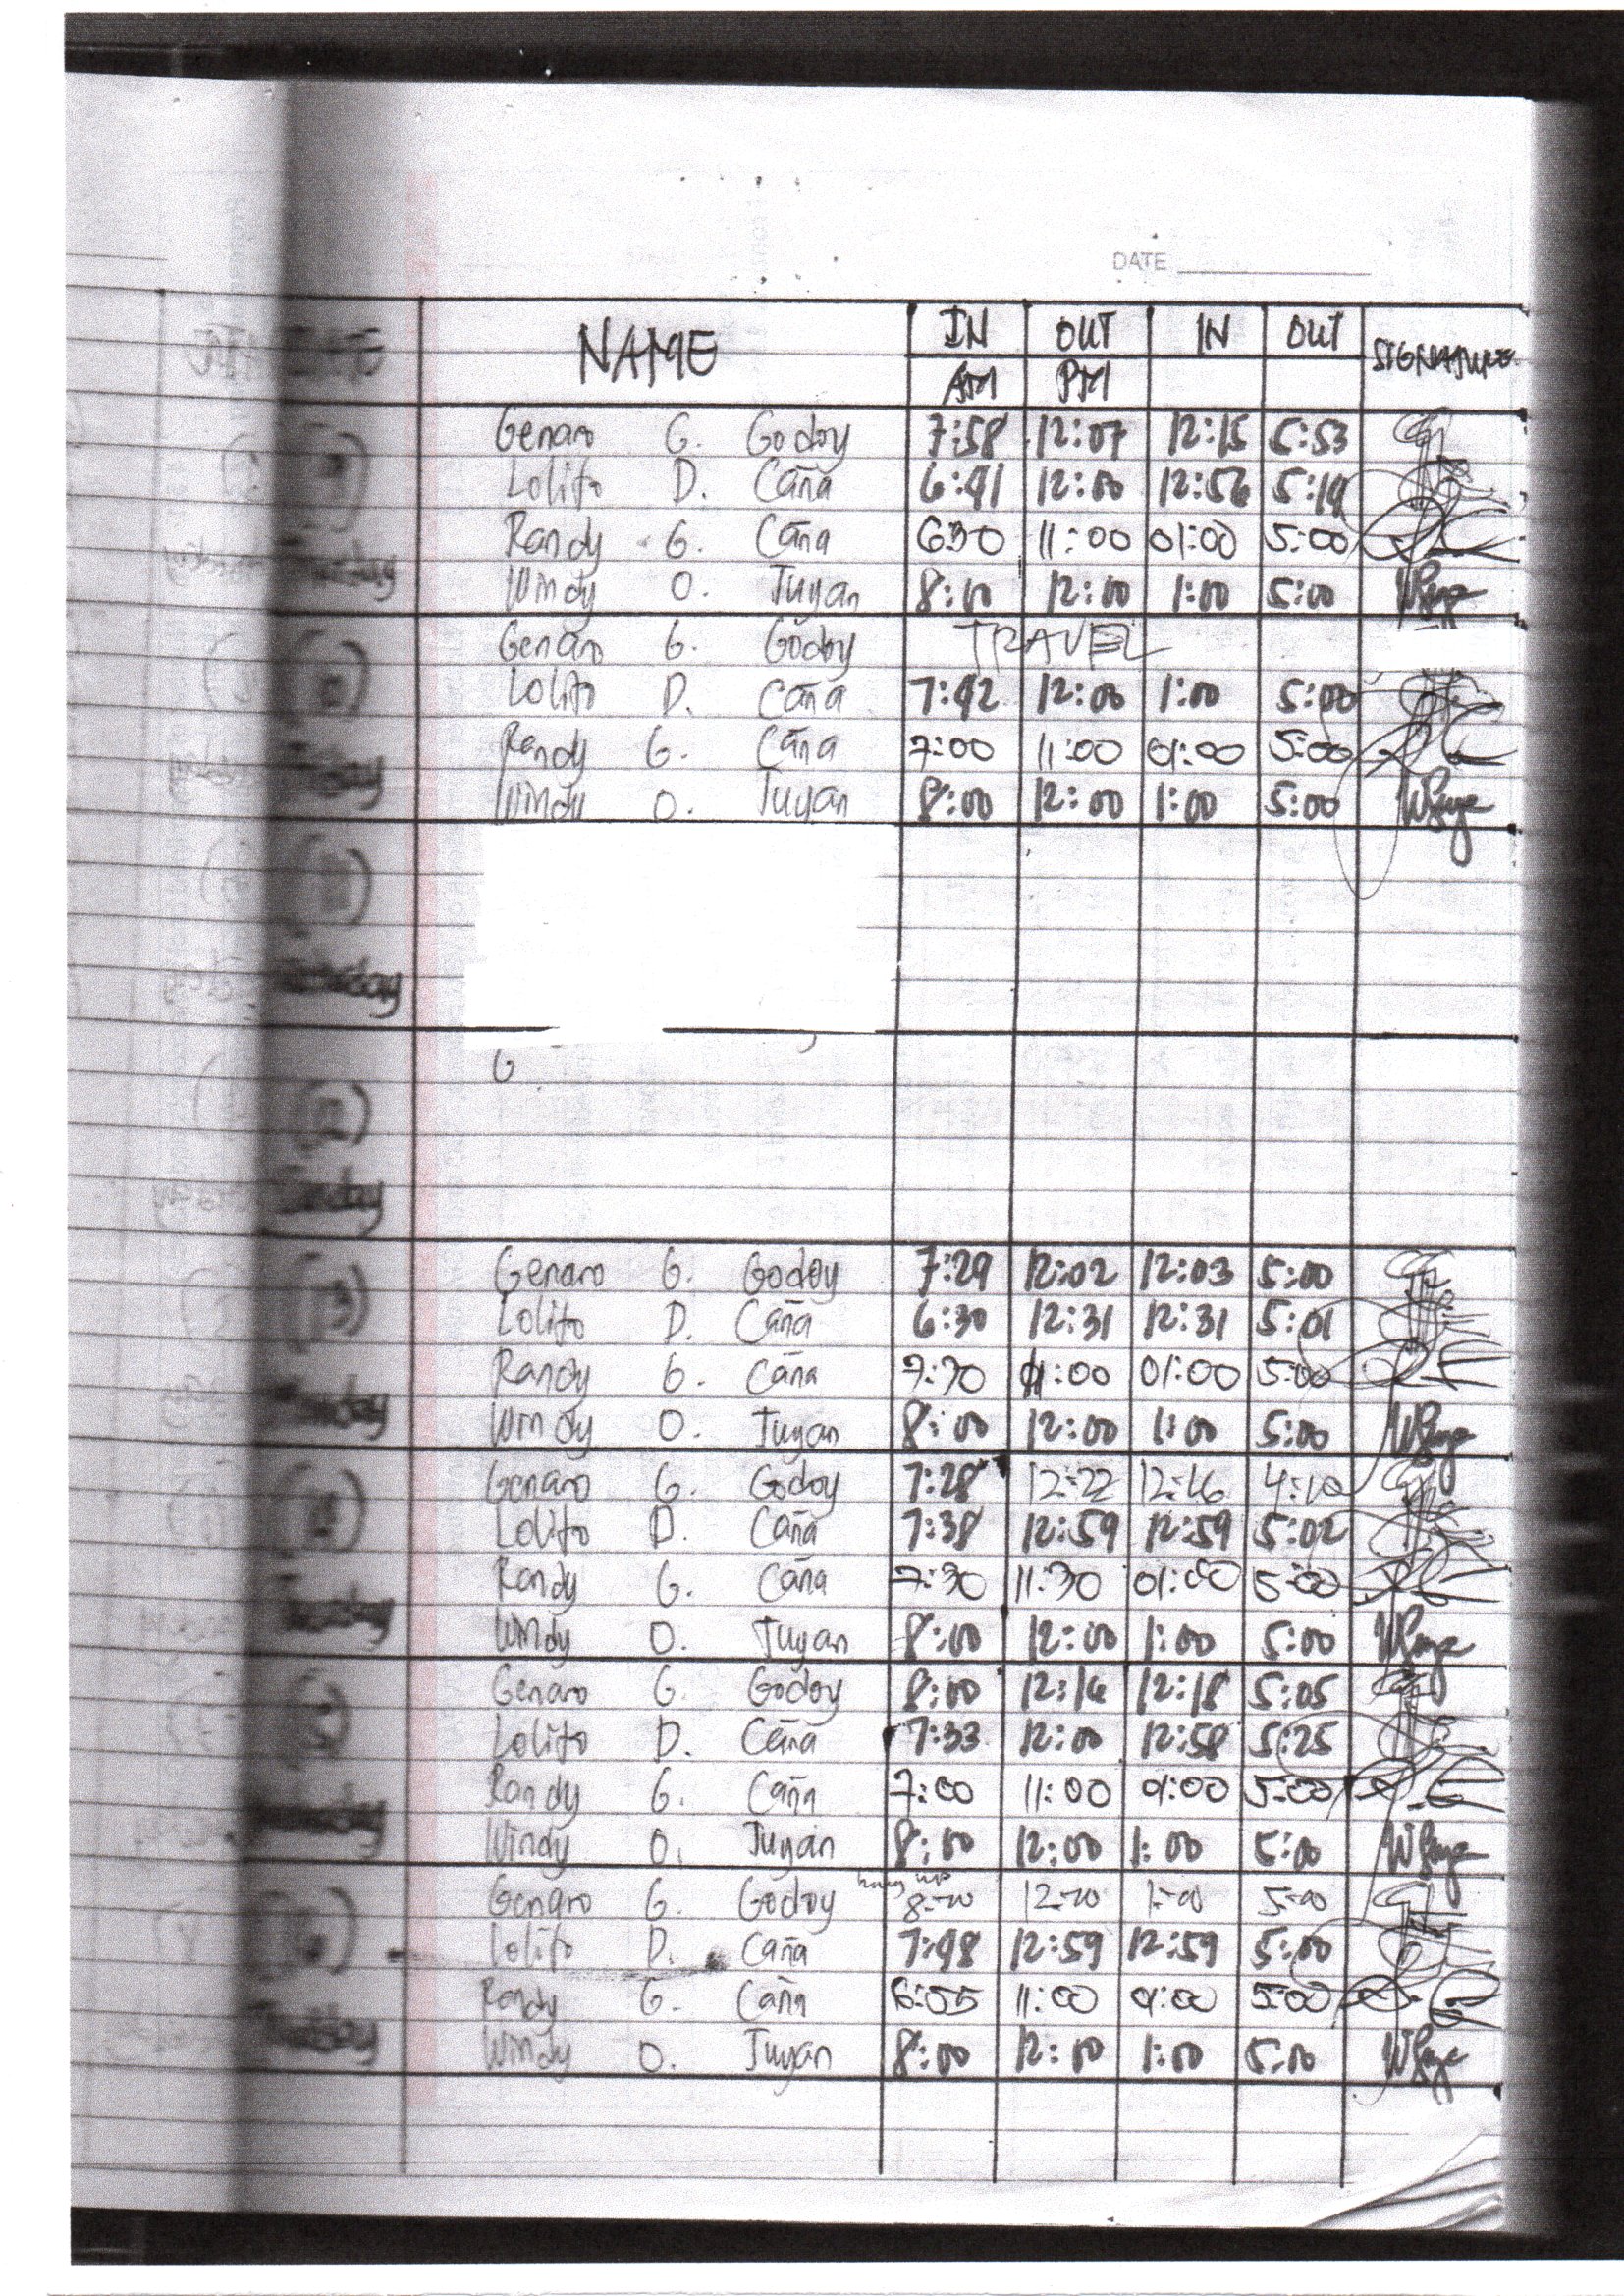 DATE
NAME IN OUT IN OUT SIGNATURE
AM PM
Genaro G. Godoy 7:58 12:07 12:15 5:53
Lolito D. Caña 6:41 12:00 12:56 5:19
Randy G. Caña 630 11:00 01:00 5:00
Windy O. Tuyan 8:00 12:00 1:00 5:00
Genaro G. Godoy TRAVEL
Lolito D. Caña 7:42 12:00 1:00 5:00
Randy G. Caña 7:00 11:00 01:00 5:00
Windy O. Tuyan 8:00 12:00 1:00 5:00
G
Genaro G. Godoy 7:29 12:02 12:03 5:00
Lolito D. Caña 6:30 12:31 12:31 5:01
Randy G. Caña 7:30 11:00 01:00 5:00
Windy O. Tuyan 8:00 12:00 1:00 5:00
Genaro G. Godoy 7:28 12:22 12:46 4:10
Lolito D. Caña 7:38 12:59 12:59 5:02
Randy G. Caña 7:30 11:30 01:00 5:00
Windy O. Tuyan 8:00 12:00 1:00 5:00
Genaro G. Godoy 8:00 12:16 12:18 5:05
Lolito D. Caña 7:33 12:00 12:58 5:25
Randy G. Caña 7:00 11:00 01:00 5:00
Windy O. Tuyan 8:00 12:00 1:00 5:00
Genaro G. Godoy 8:00 12:00 1:00 5:00
Lolito D. Caña 7:48 12:59 12:59 5:00
Randy G. Caña 6:55 11:00 01:00 5:00
Windy O. Tuyan 8:00 12:00 1:00 5:00